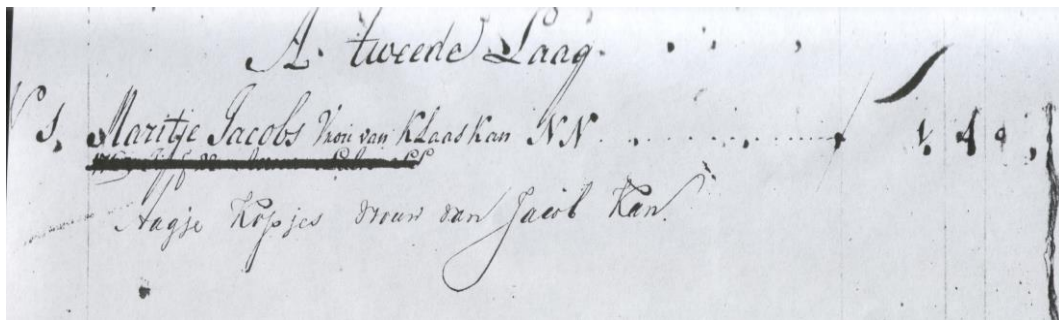 A. tweede Laag.
N 1. Maritje Jacobs Vrou van Klaas Kan NN
Aagje Kopjes vrouw van Jacob Kan.